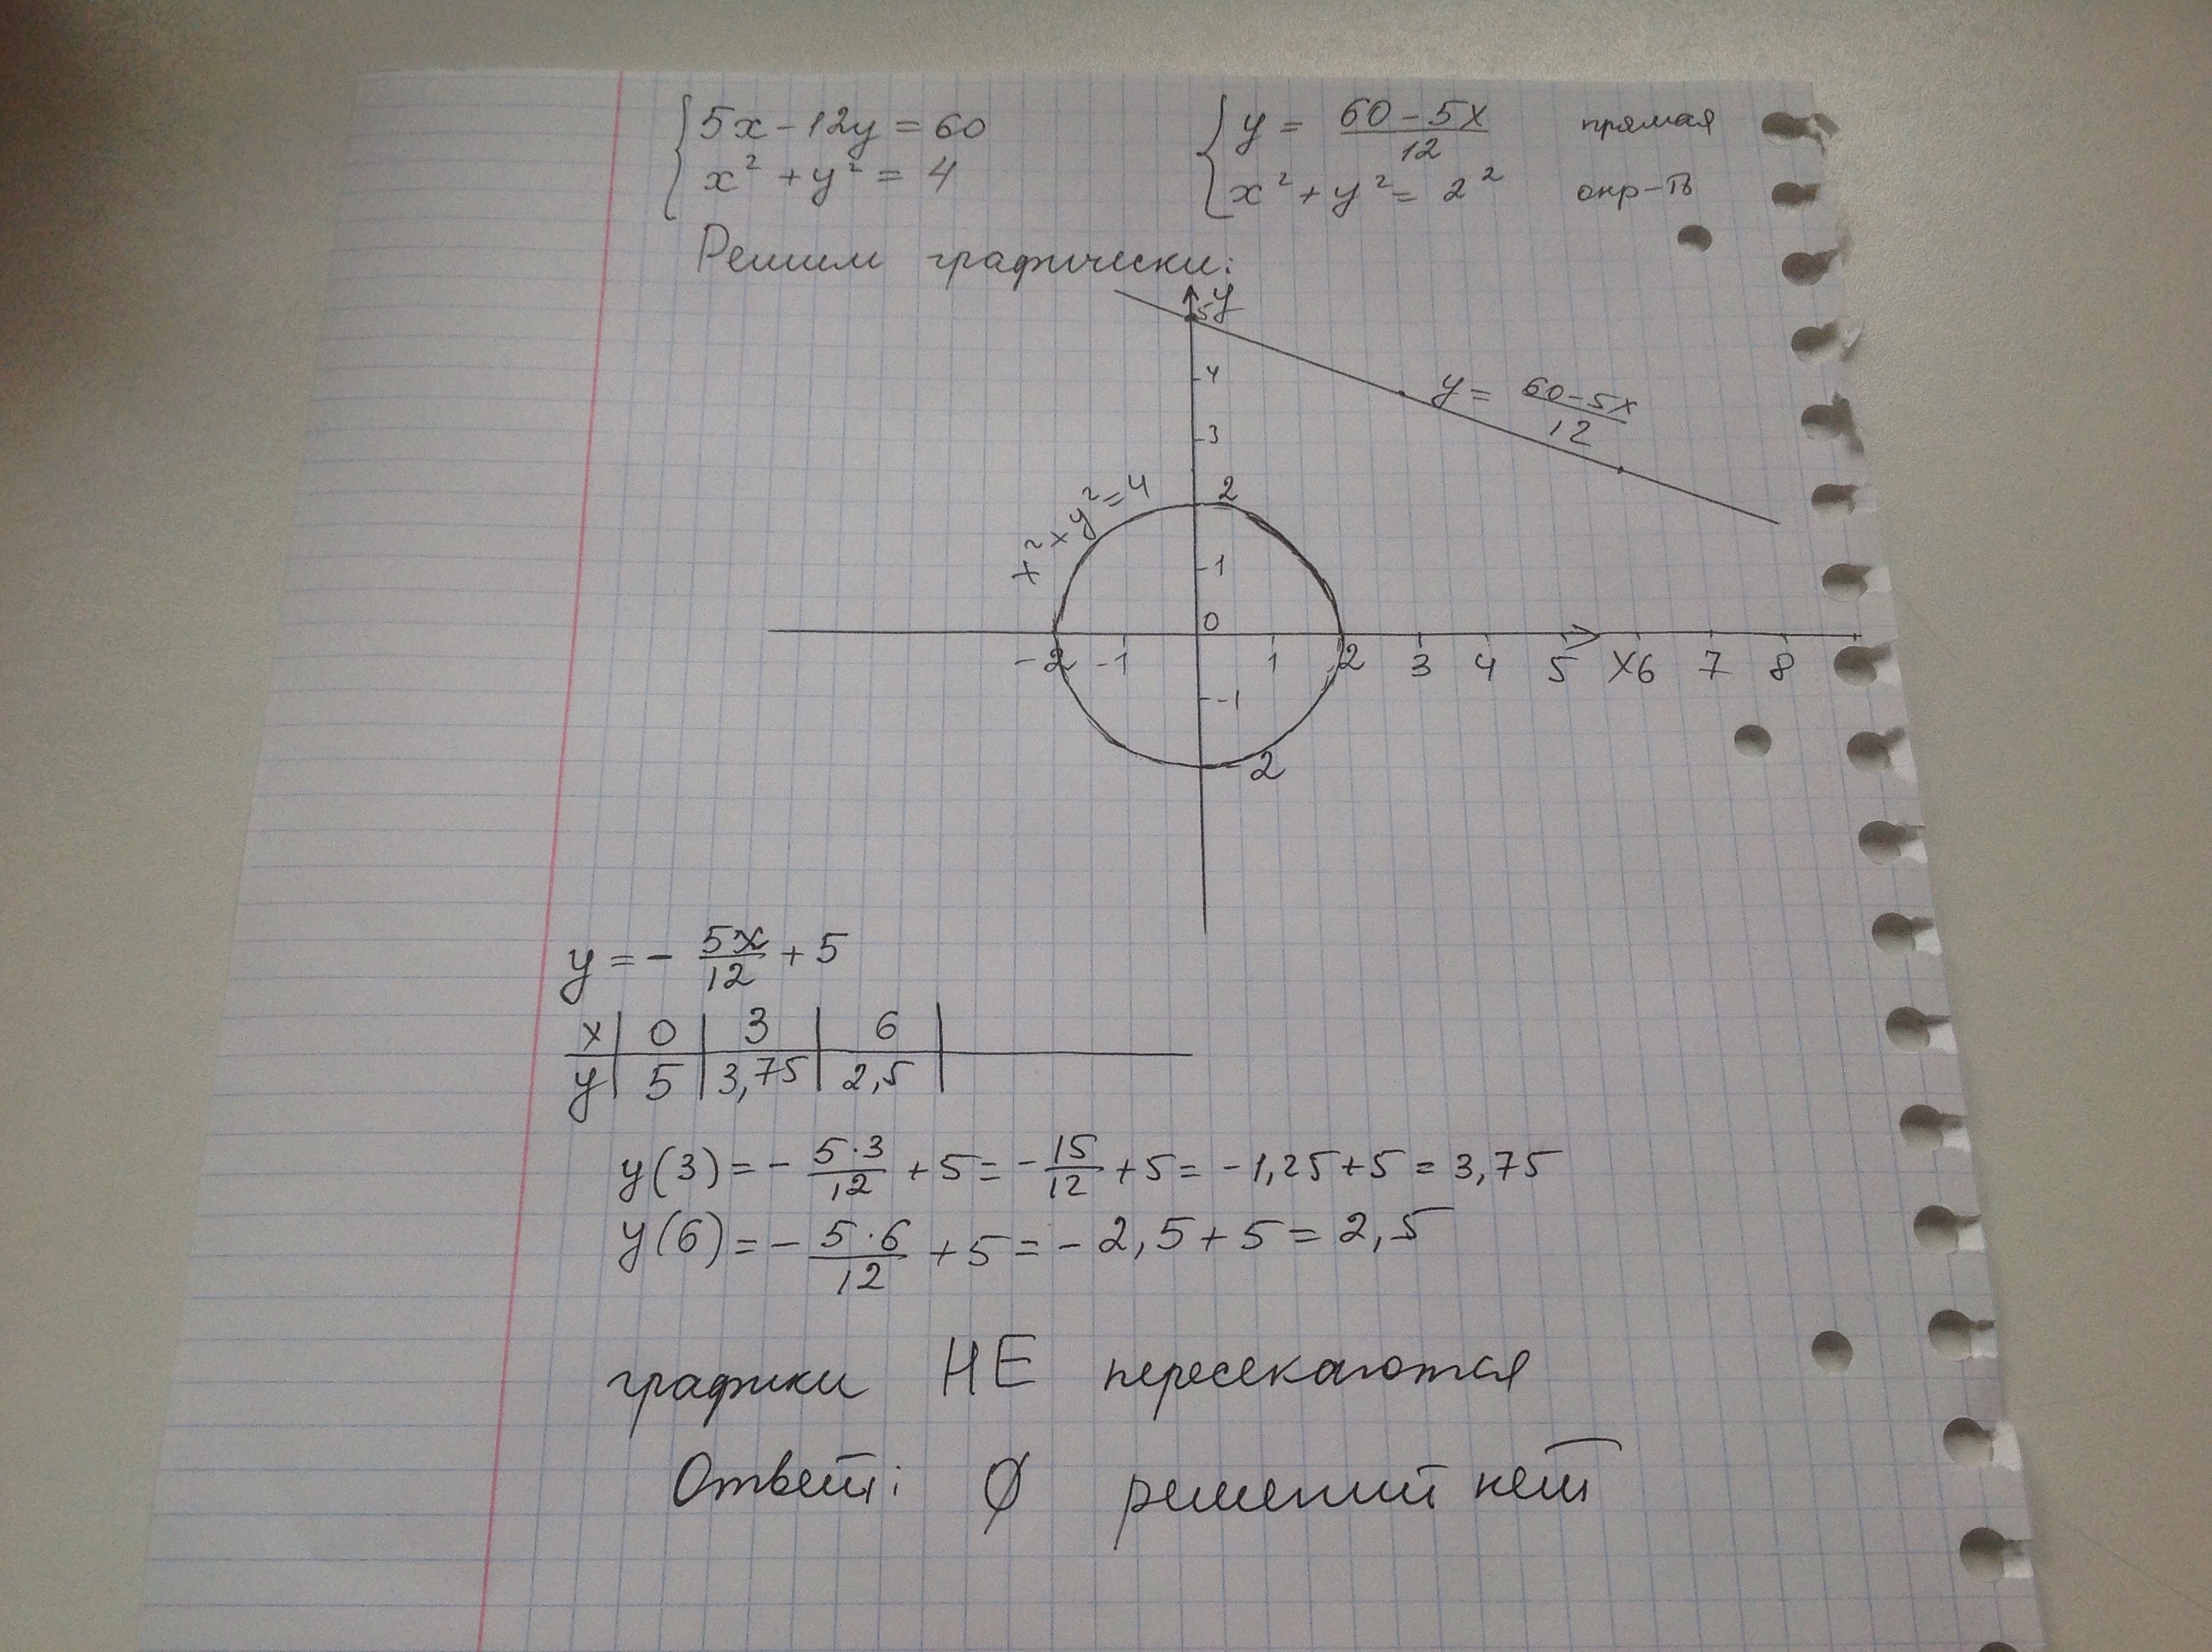 { 5x - 12y = 60
x² + y² = 4
{ y = (60 - 5x)/12 прямая
x² + y² = 2² окр-ть
Решим графически:
y
5
4
y = (60 - 5x)/12
3
x² + y² = 4
2
1
0
-2 -1 1 2 3 4 5 x 6 7 8
-1
-2
y = - 5x/12 + 5
x | 0 | 3 | 6 |
y | 5 | 3,75 | 2,5 |
y(3) = - 5·3/12 + 5 = - 15/12 + 5 = -1,25 + 5 = 3,75
y(6) = - 5·6/12 + 5 = - 2,5 + 5 = 2,5
графики НЕ пересекаются
Ответ: ∅ решений нет